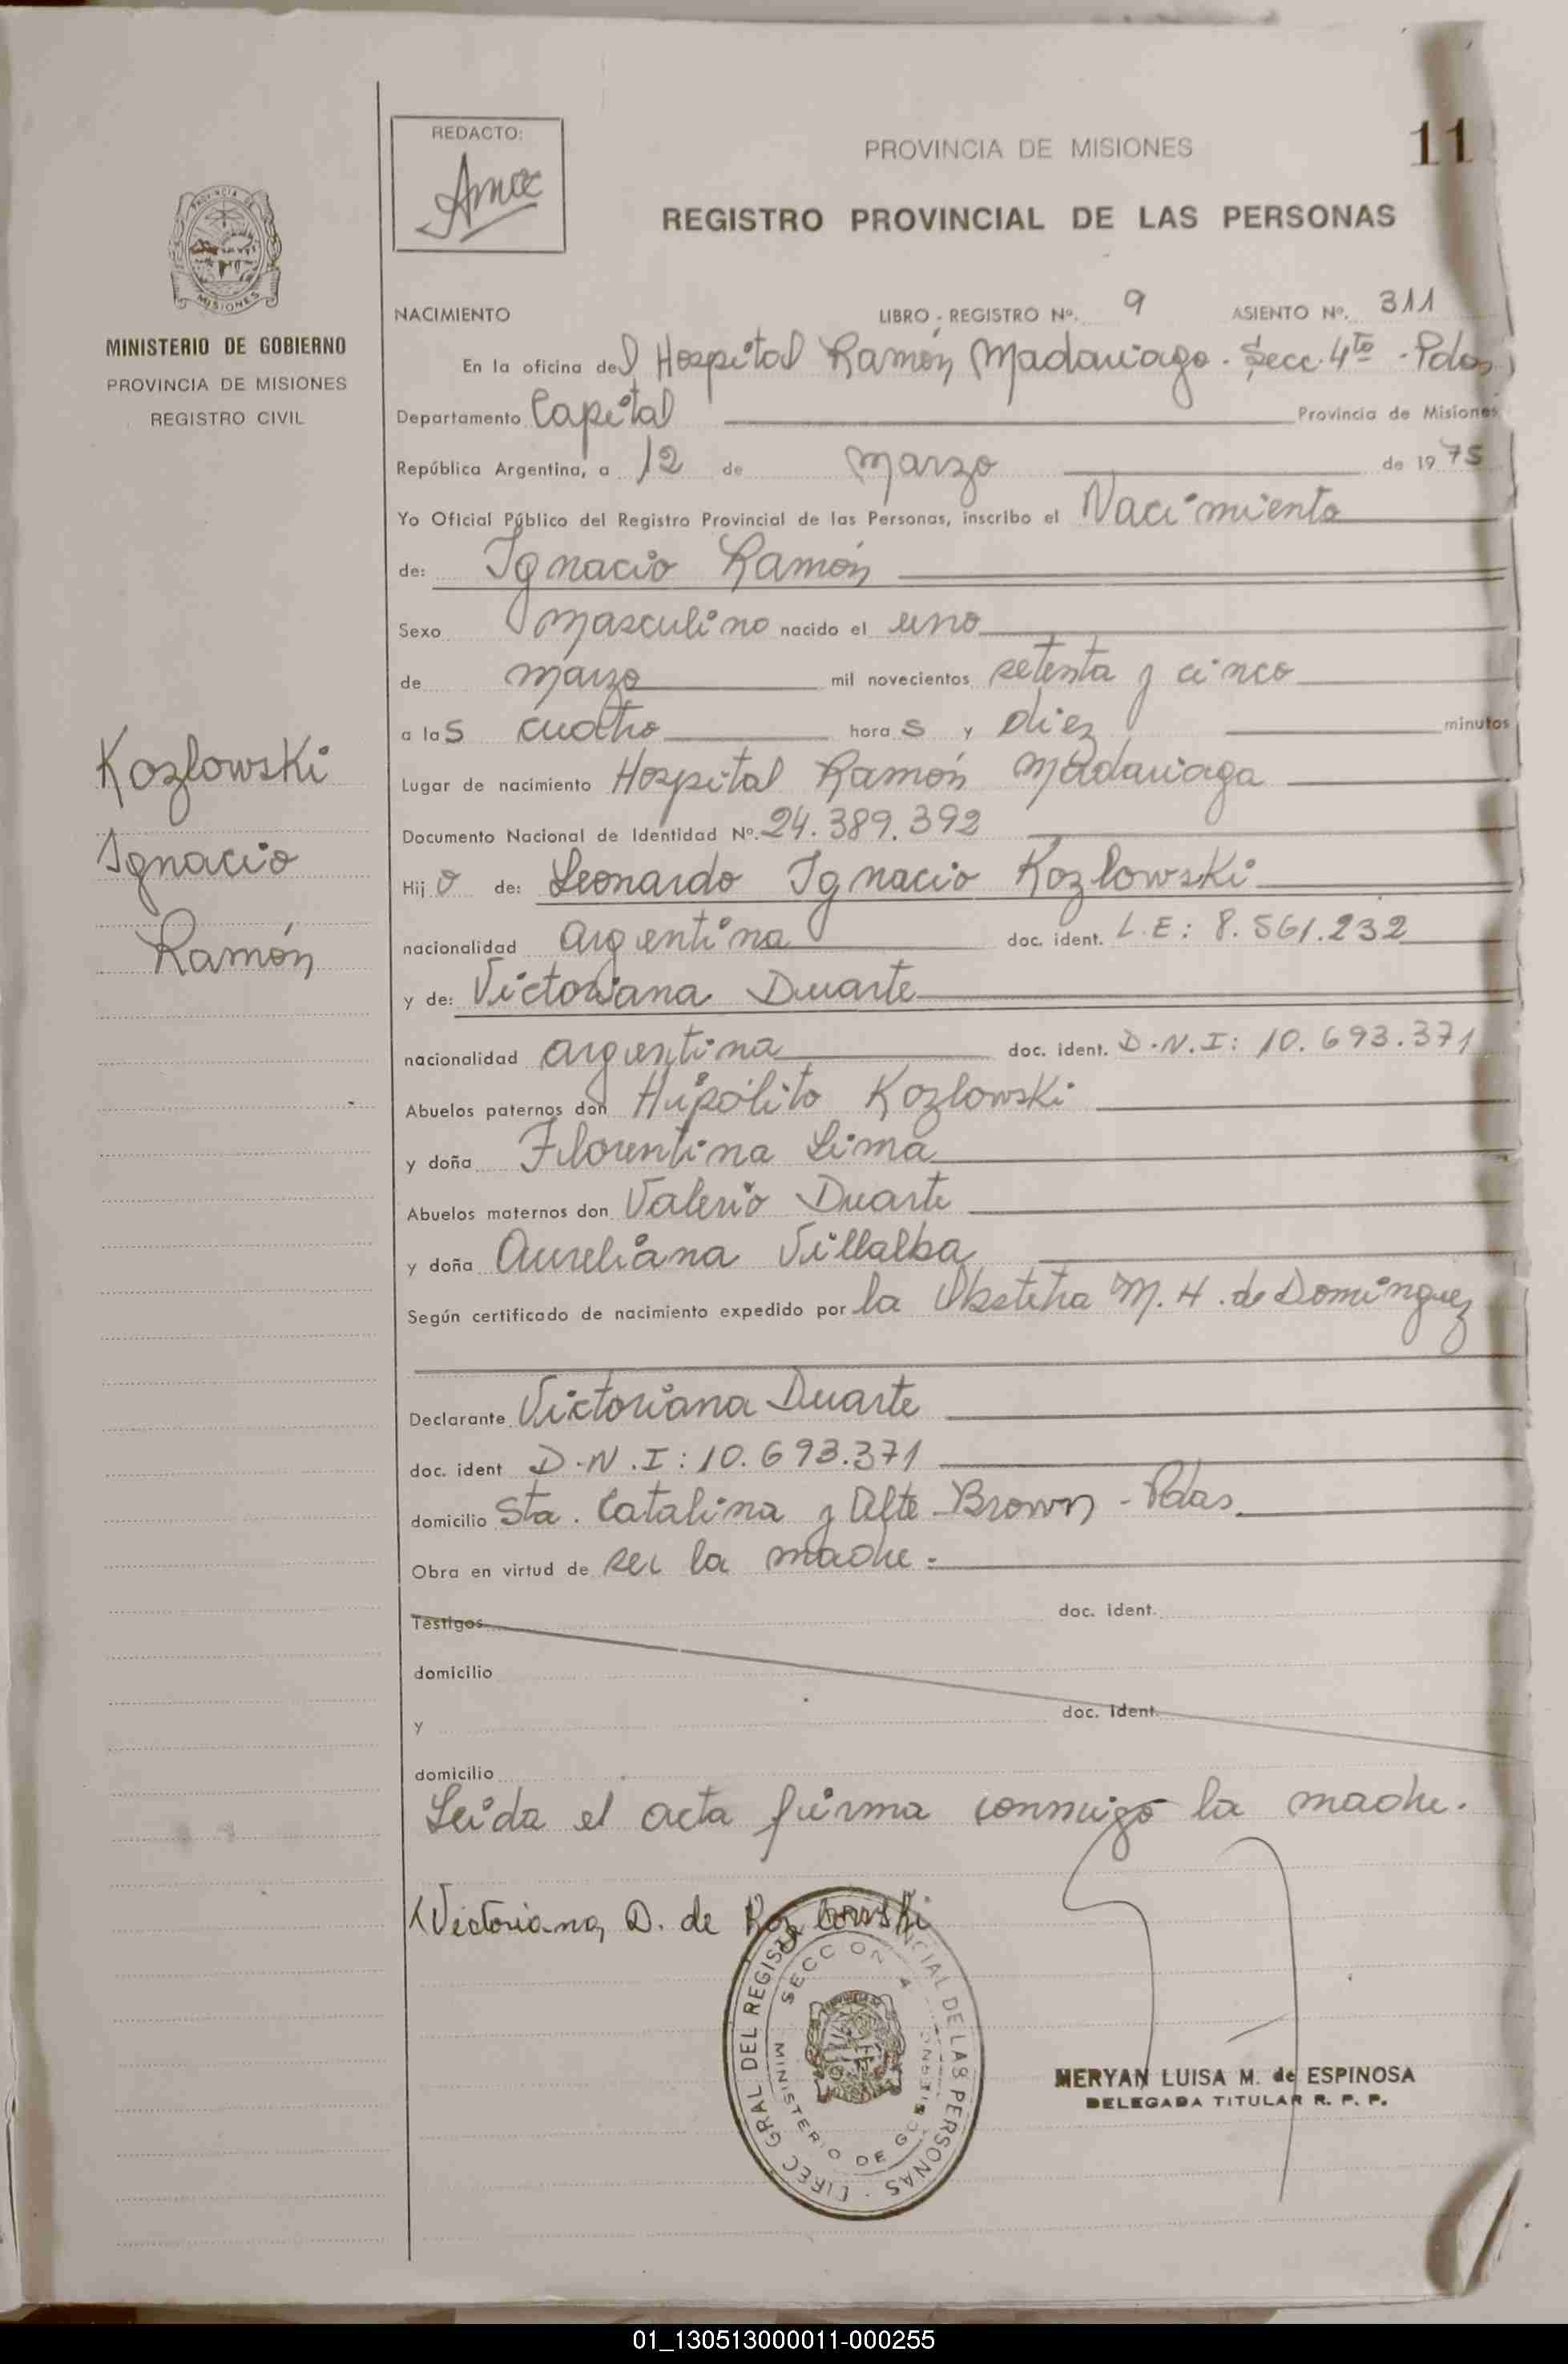 REDACTO:
PROVINCIA DE MISIONES
11
REGISTRO PROVINCIAL DE LAS PERSONAS
MISIONES
MINISTERIO DE GOBIERNO
PROVINCIA DE MISIONES
REGISTRO CIVIL
Kozlowski
Ignacio
Ramón
NACIMIENTO LIBRO - REGISTRO Nº. 9 ASIENTO Nº. 311
En la oficina del Hospital Ramón Madariaga. Secc. 4ta - Pdas
Departamento Capital Provincia de Misiones
República Argentina, a 12 de marzo de 1975
Yo Oficial Público del Registro Provincial de las Personas, inscribo el Nacimiento
de: Ignacio Ramón
Sexo masculino nacido el uno
de marzo mil novecientos setenta y cinco
a las cuatro horas y diez minutos
Lugar de nacimiento Hospital Ramón Madariaga
Documento Nacional de Identidad Nº. 24.389.392
Hijo de: Leonardo Ignacio Kozlowski
nacionalidad argentina doc. ident. L.E: 8.561.232
y de: Victoriana Duarte
nacionalidad argentina doc. ident. D.N.I: 10.693.371
Abuelos paternos don Hipólito Kozlowski
y doña Florentina Lima
Abuelos maternos don Valerio Duarte
y doña Aureliana Villalba
Según certificado de nacimiento expedido por la Obstetra M. H. de Domínguez
Declarante Victoriana Duarte
doc. ident D.N.I: 10.693.371
domicilio Sta. Catalina y Alte Brown - Pdas
Obra en virtud de ser la madre.
Testigos doc. ident.
domicilio
y doc. ident.
domicilio
Leída el acta firma conmigo la madre.
Victoriana D. de Kozlowski
DIREC GRAL DEL REGISTRO PROVINCIAL DE LAS PERSONAS
SECCION 4
MINISTERIO DE GOBIERNO
MERYAN LUISA M. de ESPINOSA
DELEGADA TITULAR R. P. P.
01_130513000011-000255